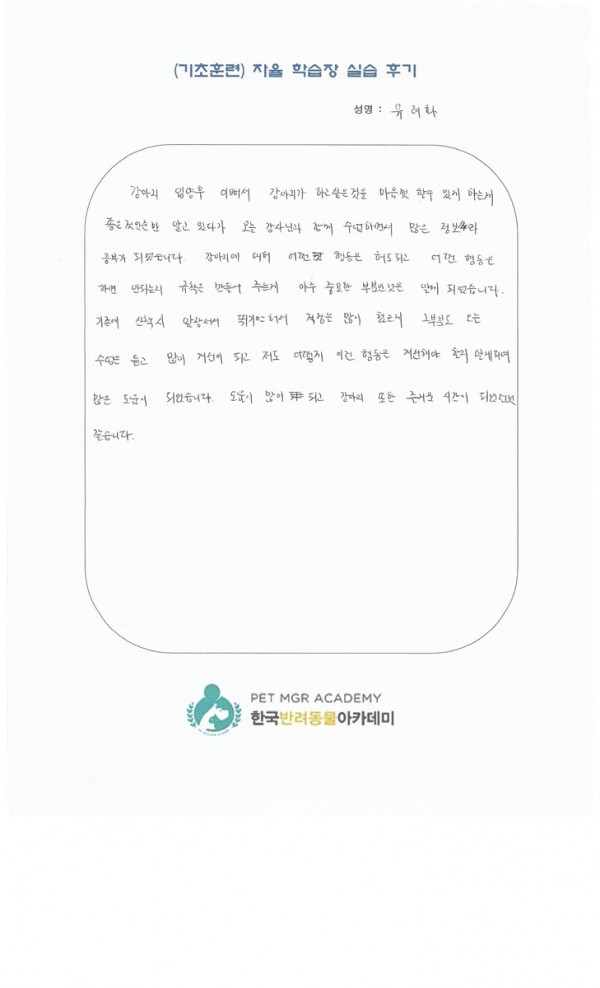 (기초훈련) 자율 학습장 실습 후기
성명 : 유려화
강아지 입양후 이뻐서 강아지가 하고싶은것을 마음껏 할수 있게 하는게
좋은것인줄만 알고 있다가 오늘 강사님과 함께 수업하면서 많은 정보와
공부가 되었습니다. 강아지에 대해 어떤 행동은 허용되고 어떤 행동은
하면 안되는지 규칙을 만들어 주는게 아주 중요한 부분인것을 알게 되었습니다.
기존에 산책시 앞장서서 뛰기만 해서 걱정을 많이 했는데 그부분도 오늘
수업을 듣고 많이 개선이 되고 저도 어떻게 이런 행동을 개선해야 할지 알게되어
많은 도움이 되었습니다. 도움이 많이 되고 강아지 또한 즐거운 시간이 되었던것
같습니다.
PET MGR ACADEMY
한국반려동물아카데미